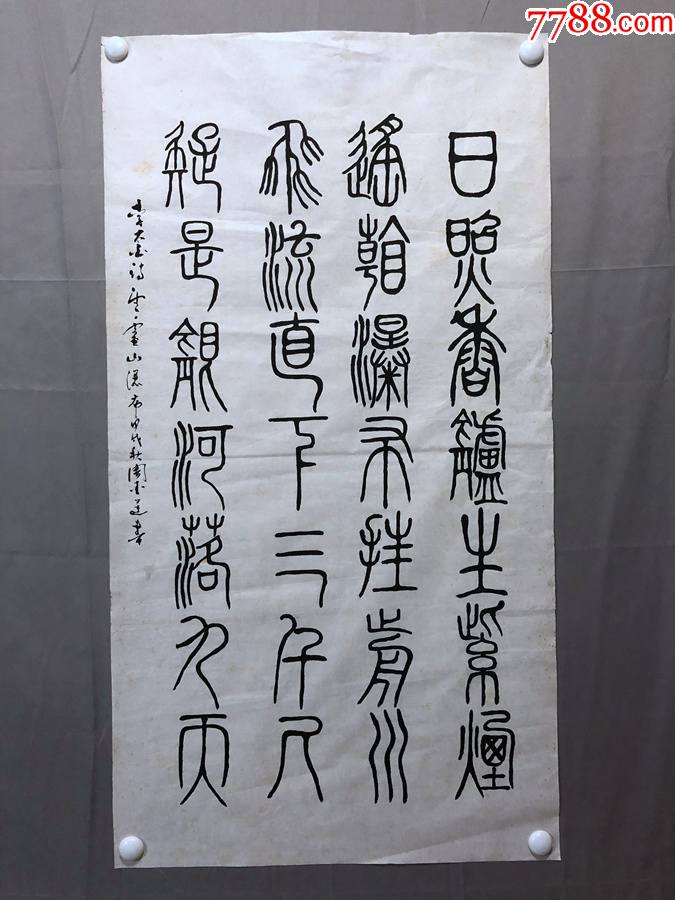 7788.com
日照香鑪生紫煙
遙看瀑布挂前川
飛流直下三千尺
疑是銀河落九天
李太白詩望廬山瀑布甲戌秋書